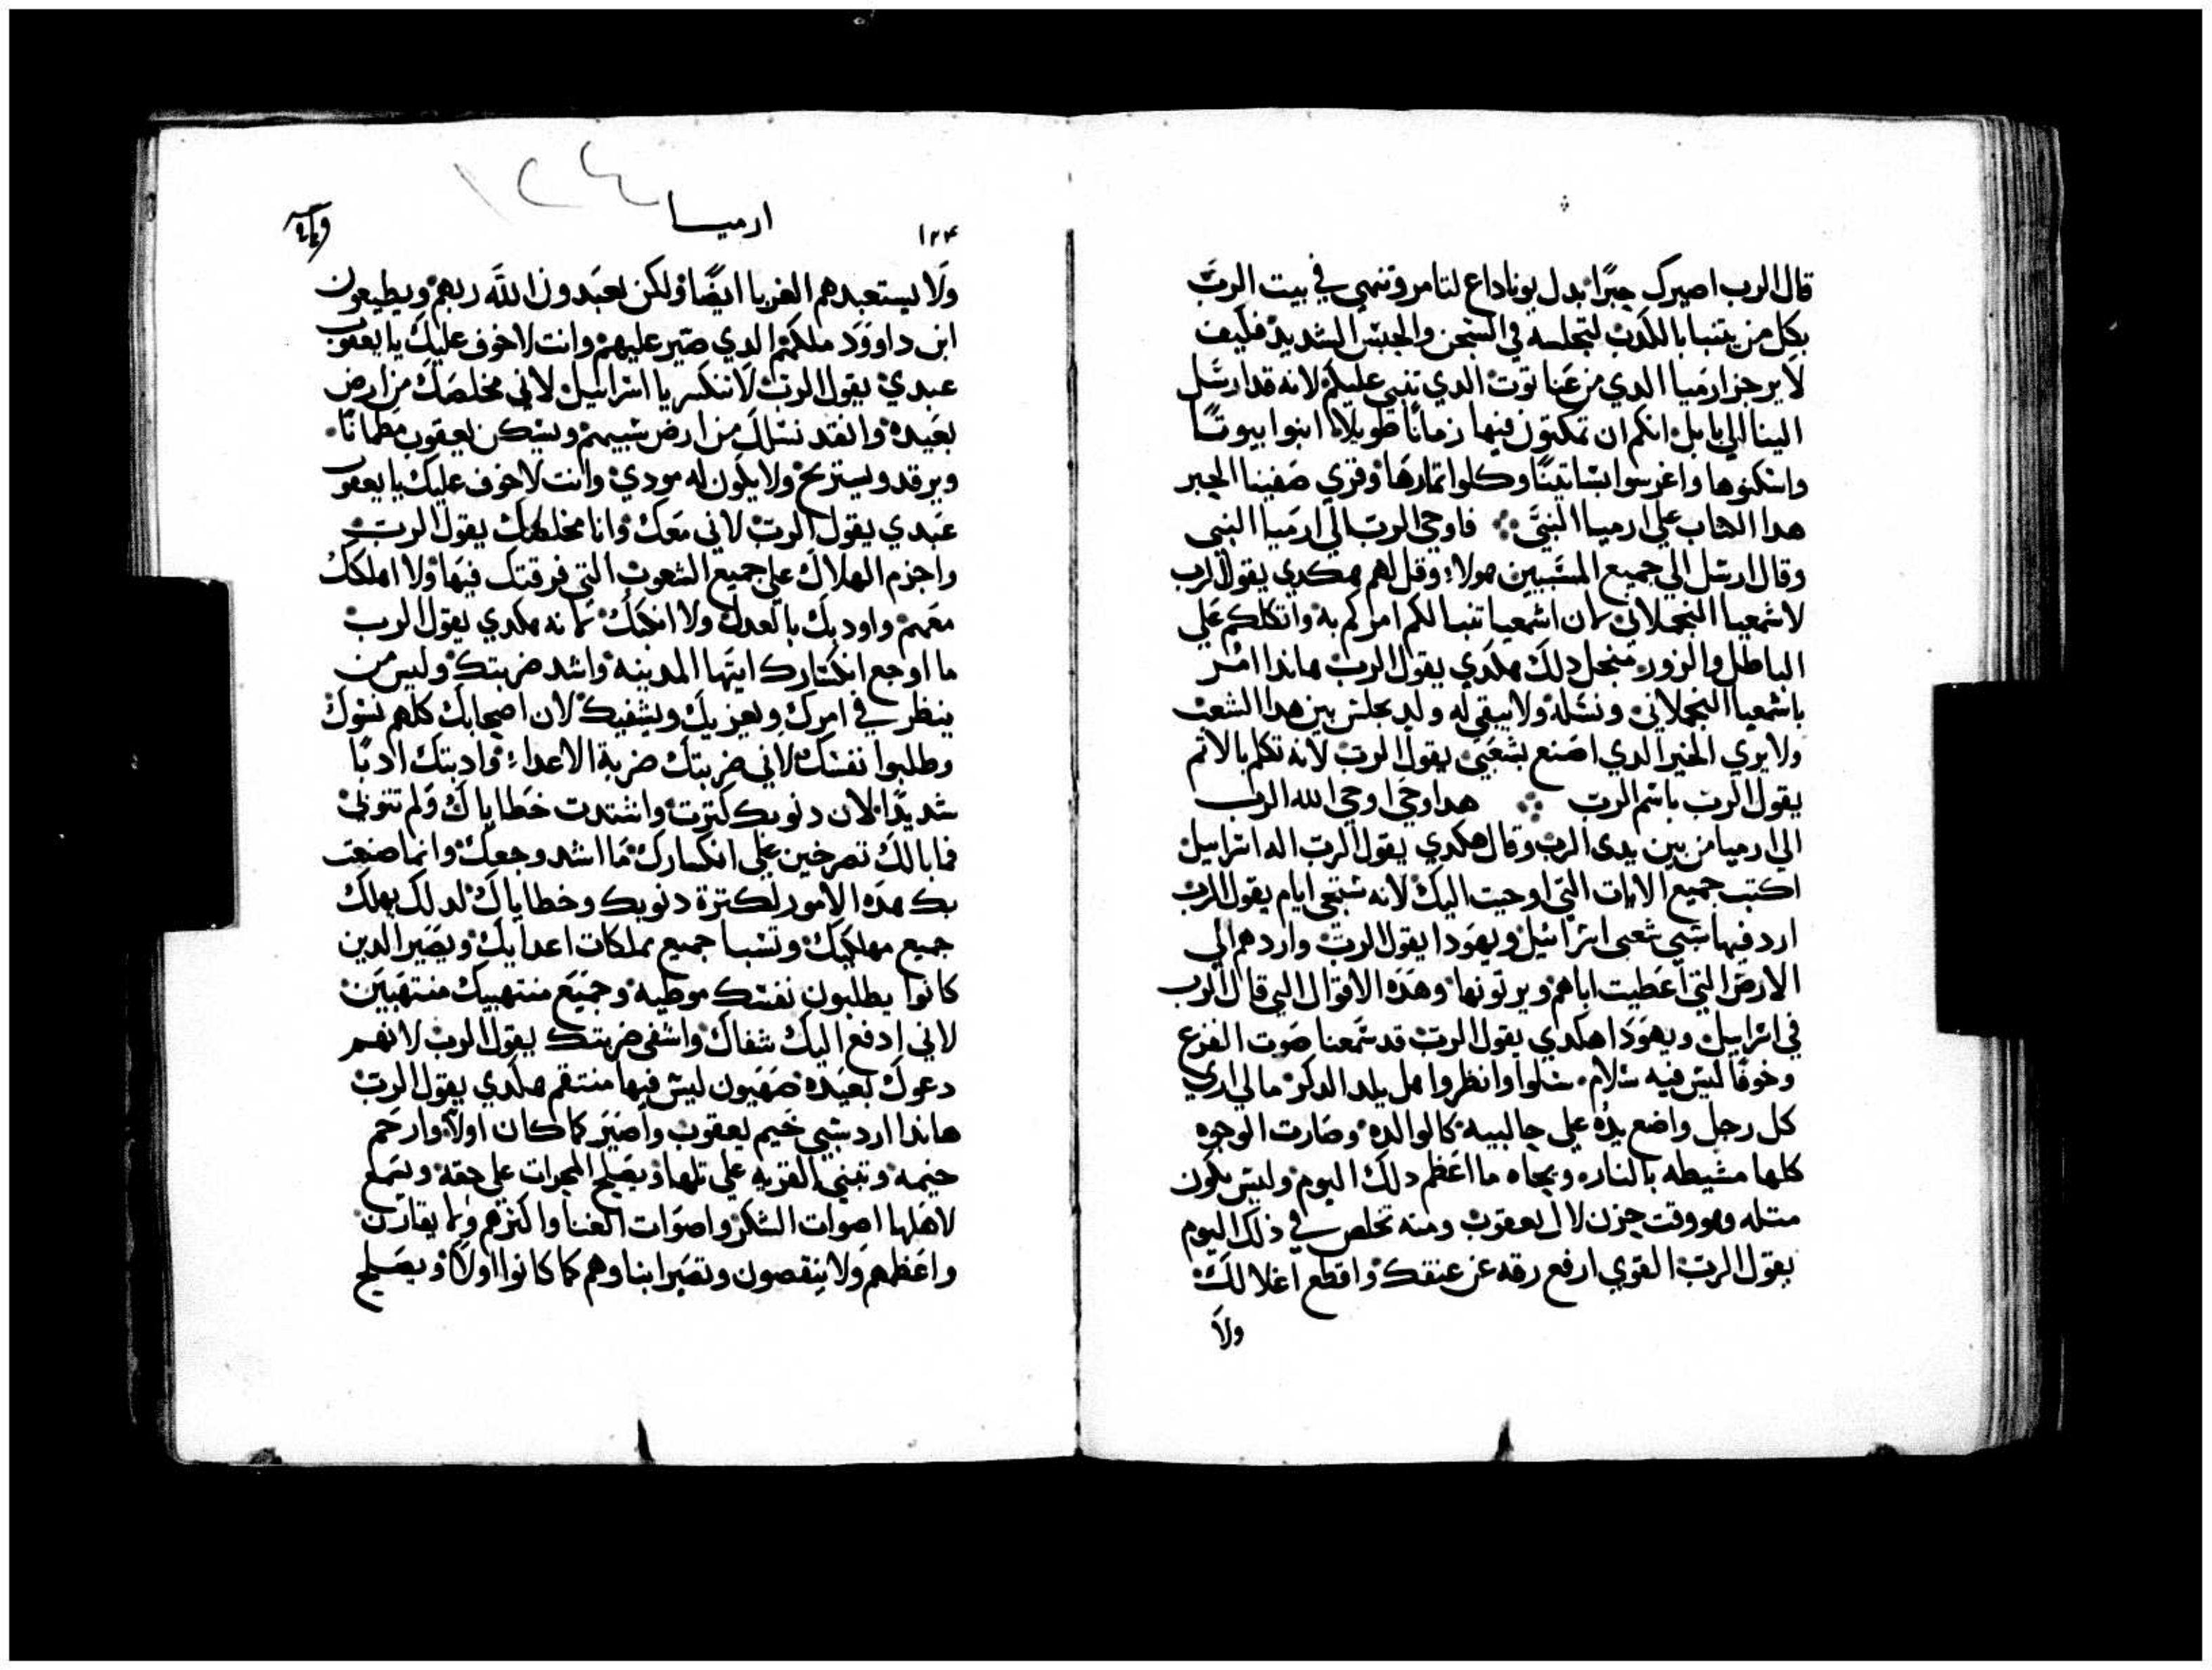 قال الرب اصيرك حبرًا بدل يوناداع لتامر وتنهي في بيت الربَ
بكل من يتنبا بالكدب لتجلسه في السجن والحبس الشديد فكيف
لا يرجز ارميا الدي من عناتوت الدي تنبي عليكم لانه قد ارسل
الينا الي بابل انكم ان تمكتون فيها زمانًا طويلاً ابنوا بيوتًا
واسكنوها واغرسوا بساتينًا وكلوا تمارها وقري صفنيا الحبر
هدا الكتاب علي ارميا النبيَ فاوحي الرب الي ارميا النبي
وقال ارسل الي جميع المسبيين هولاء وقل لهم هكدي يقول الرب
لاشمعيا النحملاني لان اشمعيا تنبا لكم امركم به واتكلكم علي
الباطل والزور منجل دلك هكدي يقول الرب هاندا امر
باشمعيا النحملاني ونسله ولا يبقي له ولد يجلس بين هدا الشعب
ولا يري الخير الدي اصنع بشعبي يقول الرب لانه تكلم بالاتم
يقول الرب باسم الرب هدا وحي اوحي الله الرب
الي ارميا من بين يدي الرب وقال هكدي يقول الرب اله اسراييل
اكتب جميع الايات التي اوحيت اليك لانه ستجي ايام يقول الرب
ارد فيها سبي شعبي اسراييل ويهودا يقول الرب واردهم الي
الارض التي اعطيت اباهم ويرتونها وهده الاقوال التي قال الرب
في اسراييل ويهودا هكدي يقول الرب قد سمعنا صوت الفزع
وخوفًا ليس فيه سلام سلوا وانظروا هل يلد الدكر مالي اري
كل رجل واضع يده علي جالبيه كالوالده وصارت الوجوه
كلها مشيطه بالنار ويحاه ما اعظم دلك اليوم وليس يكون
متله وهو وقت حزن لال يعقوب ومنه تخلص في ذلك اليوم
يقول الرب القوي ارفع رقه عن عنقك واقطع اغلالك
ولا
١٢٤
ارميا
١٢٤
ولا يستعبدهم الغربا ايضًا ولكن يعبدون الله ربهم ويطيعون
ابن داوود ملكهم الدي صير عليهم وانت لا خوف عليك يا يعقوب
عبدي يقول الرب لا تنكسر يا اسراييل لاني مخلصك من ارض
بعيده وانقد نسلك من ارض سبيهم ويسكن يعقوب مطمانًا
ويرقد ويستريح ولا يكون له مودي وانت لا خوف عليك يا يعقوب
عبدي يقول الرب لاني معك وانا مخلصك يقول الرب
واجزم الهلاك علي جميع الشعوب التي فرقتك فيها ولا اهلكك
معهم واودبك بالعدل ولا لانه هكدي يقول الرب
ما اوجع انكسارك ايتها المدينه واشد ضربتك وليس من
ينظر في امرك ويعزيك ويشفيك لان اصحابك كلهم نسوك
وطلبوا نفسك لاني ضربتك ضربة الاعداء وادبتك ادبًا
شديدًا لان دنوبك كترت واشتدت خطاياك ولم تتوبي
فما بالك تصرخين علي انكسارك ما اشد وجعك وانما صنعت
بك هده الامور لكترة دنوبك وخطاياك لدلك يهلك
جميع مهلكيك وتسبا جميع مملكات اعدايك ويصير الدين
كانوا يطلبون نفسك موطيه وجميع منتهبيك منتهبين
لاني ادفع اليك شفاك واشفي ضربتك يقول الرب لانهم
دعوك بعيده صهيون ليس فيها منتقم هكدي يقول الرب
هاندا ارد سبي خيم يعقوب واصير كما كان اولاً وارحم
خيمه وتبني القريه علي تلها ويصلح المجرات علي حقه ويسمع
لاهلها اصوات الشكر واصوات الغنا واكترهم ولا
واعظمهم ولا ينقصون وتصير ابناوهم كما كانوا اولاً ويصلح